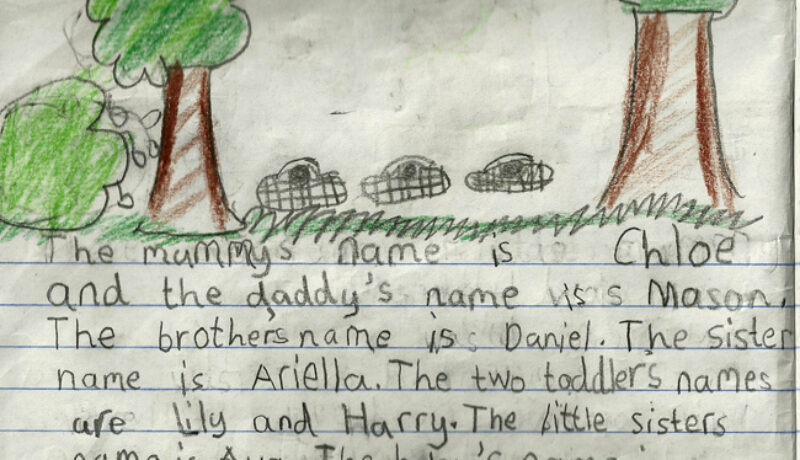 The mummys name is Chloe
and the daddy's name is Mason.
The brother's name is Daniel. The sister
name is Ariella. The two toddler's names
are Lily and Harry. The little sisters
name is Ava. The baby's name is